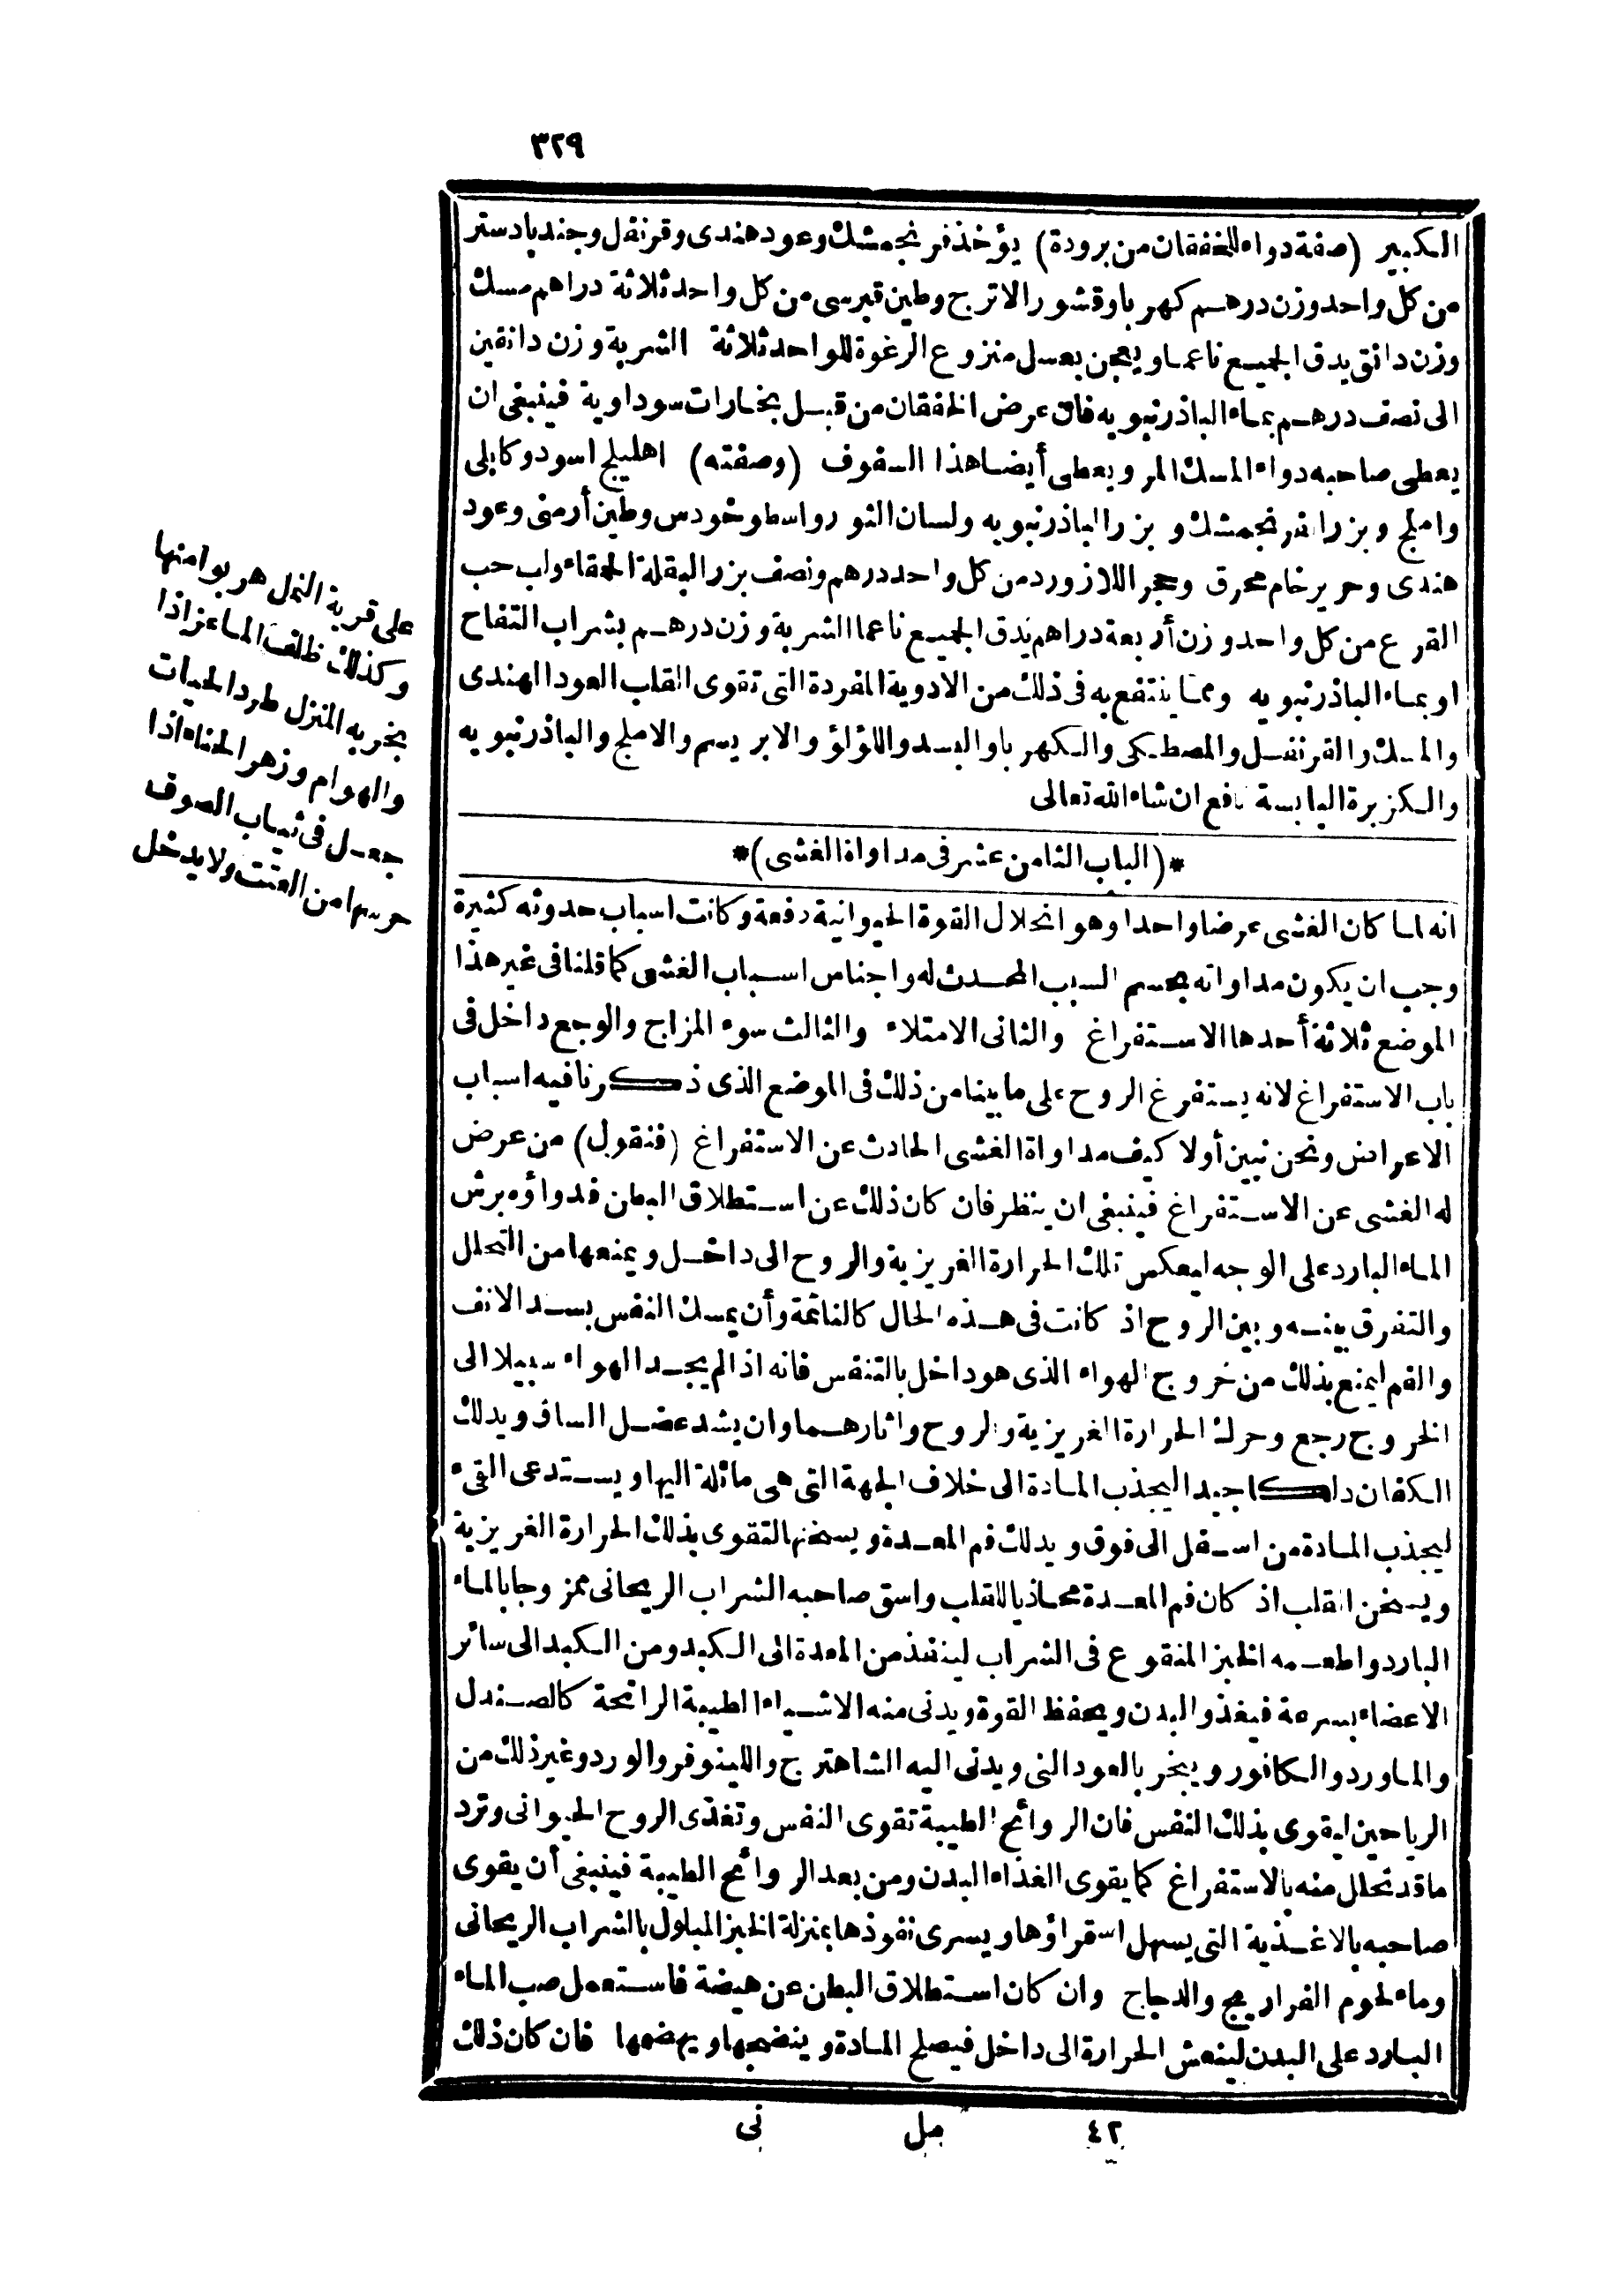 ٣٢٩
الكبير (صفة دواء للخفقان من برودة) يؤخذ فرنجمشك وعود هندى وقرنفل وجندبادستر
من كل واحد وزن درهم كهربا وقشور الاترج وطين قبرسى من كل واحد ثلاثة دراهم مسك
وزن دانق يدق الجميع ناعما ويعجن بعسل منزوع الرغوة للواحد ثلاثة الشربة وزن دانقين
الى نصف درهم بماء الباذرنبويه فان عرض الخفقان من قبل بخارات سوداوية فينبغى ان
يعطى صاحبه دواء المسك المر ويعطى أيضا هذا السفوف (وصفته) اهليلج اسود وكابلى
واملج وبزر افرنجمشك وبزر الباذرنبويه ولسان الثور واسطوخودس وطين أرمنى وعود
هندى وحرير خام محرق وحجر اللازورد من كل واحد درهم ونصف بزر البقلة الحمقاء ولب حب
القرع من كل واحد وزن أربعة دراهم يدق الجميع ناعما الشربة وزن درهم بشراب التفاح
او بماء الباذرنبويه ومما ينتفع به فى ذلك من الادوية المفردة التى تقوى القلب العود الهندى
والمسك والقرنفل والمصطكى والكهربا والبسد واللؤلؤ والابريسم والاملج والباذرنبويه
والكزبرة اليابسة نافع ان شاء الله تعالى
*(الباب الثامن عشر فى مداواة الغشى)*
انه لما كان الغشى عرضا واحدا وهو انحلال القوة الحيوانية دفعة وكانت اسباب حدوثه كثيرة
وجب ان يكون مداواته بحسم السبب المحدث له واجناس اسباب الغشى كما قلنا فى غير هذا
الموضع ثلاثة أحدها الاستفراغ والثانى الامتلاء والثالث سوء المزاج والوجع داخل فى
باب الاستفراغ لانه يستفرغ الروح على ما بينا من ذلك فى الموضع الذى ذكرنا فيه اسباب
الاعراض ونحن نبين أولا كيف مداواة الغشى الحادث عن الاستفراغ (فنقول) من عرض
له الغشى عن الاستفراغ فينبغى ان ينظر فان كان ذلك عن استطلاق البطن فدواؤه برش
الماء البارد على الوجه ليعكس تلك الحرارة الغريزية والروح الى داخل ويمنعها من التحلل
والتفرق بينه وبين الروح اذ كانت فى هذه الحال كالنائمة وأن يمسك النفس بسد الانف
والفم ليمنع بذلك من خروج الهواء الذى هو داخل بالتنفس فانه اذا لم يجد الهواء سبيلا الى
الخروج رجع وحرك الحرارة الغريزية والروح واثارهما وان يشد عضل الساق ويدلك
الكفان دلكا جيدا ليجذب المادة الى خلاف الجهة التى هى مائلة اليها ويستدعى القىء
ليجذب المادة من اسفل الى فوق ويدلك فم المعدة ويسخنها لتقوى بذلك الحرارة الغريزية
ويسخن القلب اذ كان فم المعدة محاذيا للقلب واسق صاحبه الشراب الريحانى ممزوجا بالماء
البارد واطعمه الخبز المنقوع فى الشراب لينفذ من المعدة الى الكبد ومن الكبد الى سائر
الاعضاء بسرعة فيغذو البدن ويحفظ القوة ويدنى منه الاشياء الطيبة الرائحة كالصندل
والماورد والكافور ويبخر بالعود النى ويدنى اليه الشاهترج واللينوفر والورد وغير ذلك من
الرياحين ليقوى بذلك النفس فان الروائح الطيبة تقوى النفس وتغذى الروح الحيوانى وترد
ما قد تحلل منه بالاستفراغ كما يقوى الغذاء البدن ومن بعد الروائح الطيبة فينبغى أن يقوى
صاحبه بالاغذية التى يسهل استقراؤها ويسرى نفوذها بمنزلة الخبز المبلول بالشراب الريحانى
وماء لحوم الفراريج والدجاج وان كان استطلاق البطن عن هيضة فاستعمل صب الماء
البارد على البدن لينعش الحرارة الى داخل فيصلح المادة وينضجها ويهضمها فان كان ذلك
على قرية النمل هربوا منها
وكذلك ظلف الماعز اذا
بخر به المنزل طرد الحيات
والهوام وزهر الحناء اذا
جعل فى ثياب الصوف
حرسها من العتت ولا يدخل
٤٢ مل نى